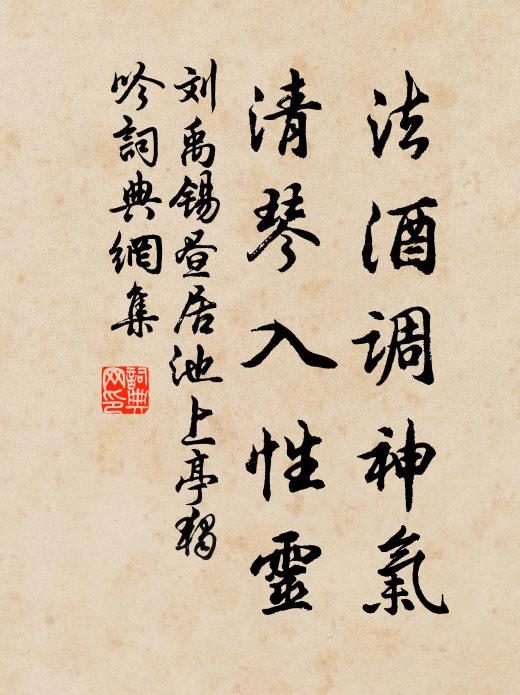 法酒调神氣
清琴入性靈
刘禹锡昼居池上亭獨
吟詞典網集
詞典網印